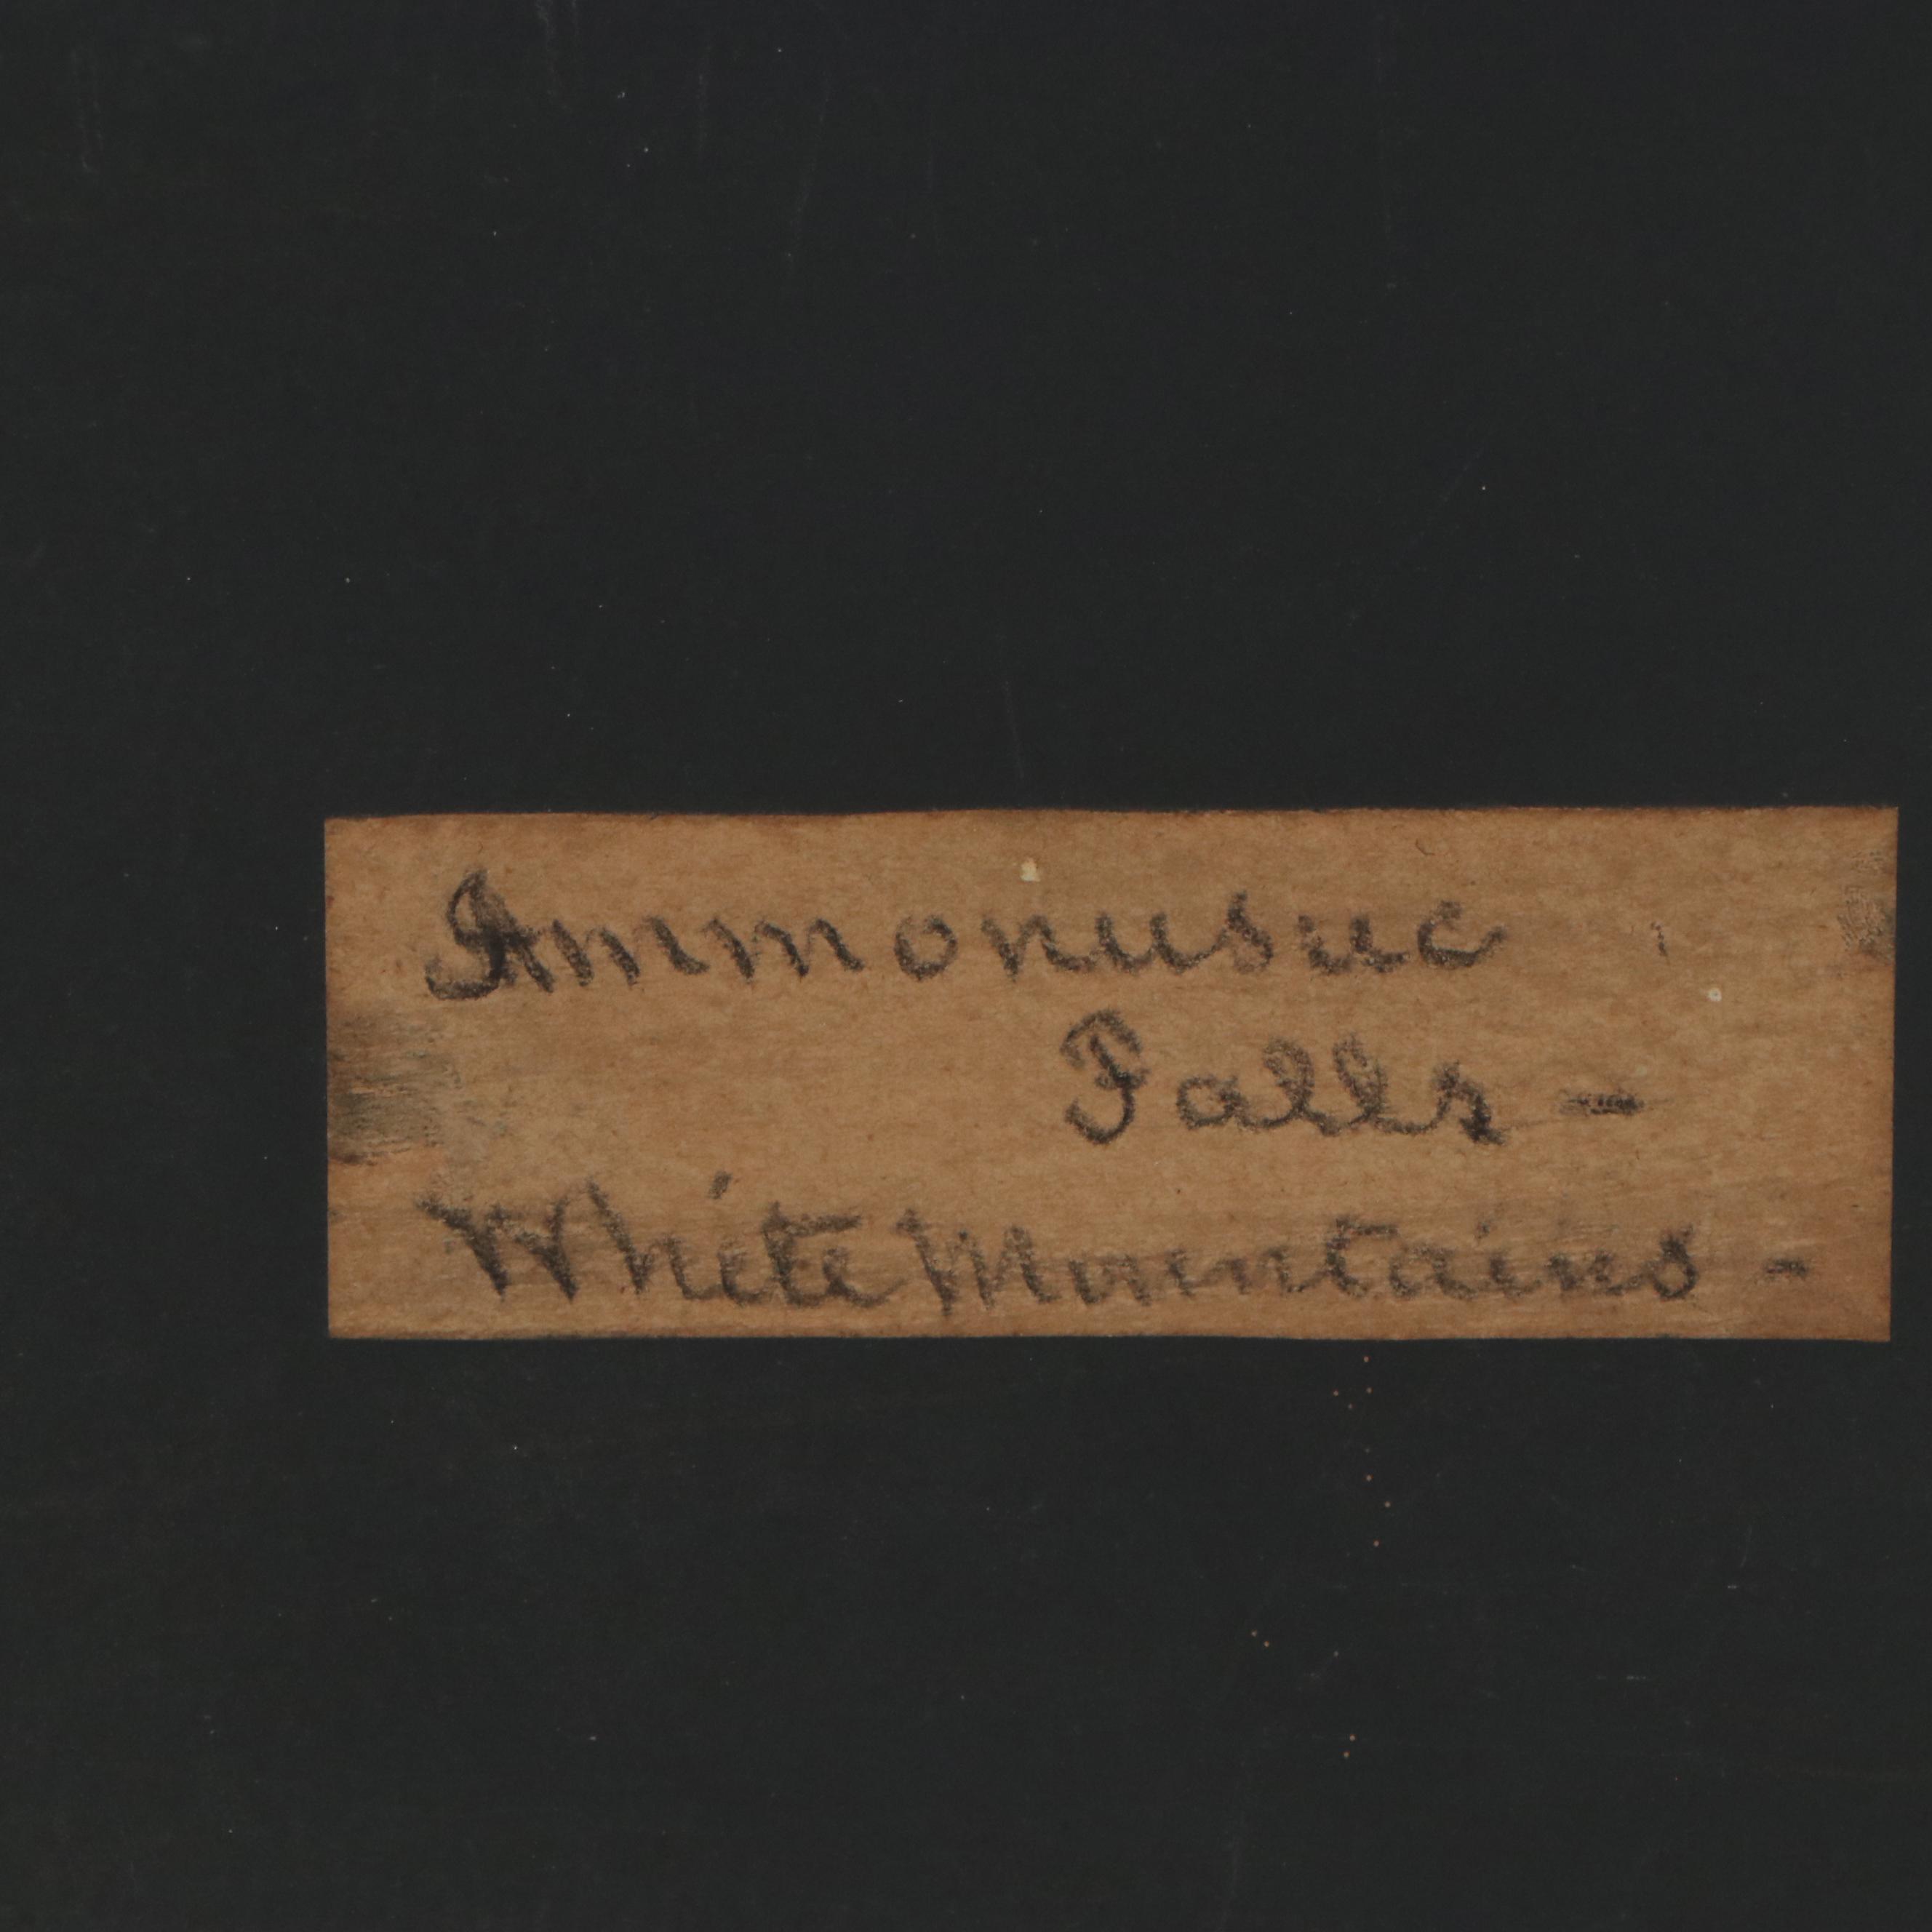 Ammonusuc
Falls -
White Mountains -